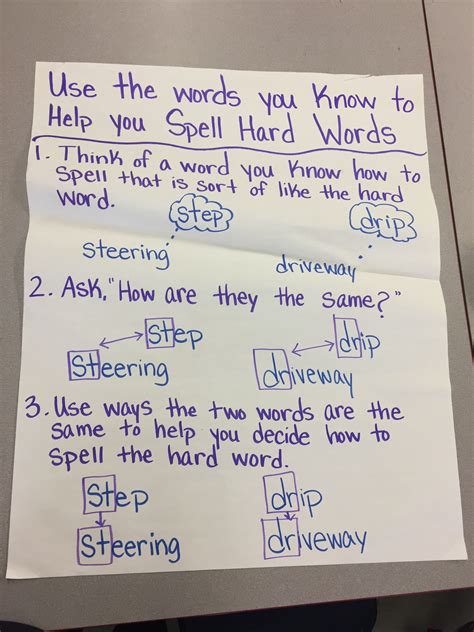 Use the words you Know to
Help you Spell Hard Words
1. Think of a word you know how to
spell that is sort of like the hard
word.
step
drip
steering
driveway
2. Ask, "How are they the same?"
step
drip
steering
driveway
3. Use ways the two words are the
same to help you decide how to
spell the hard word.
step
drip
steering
driveway